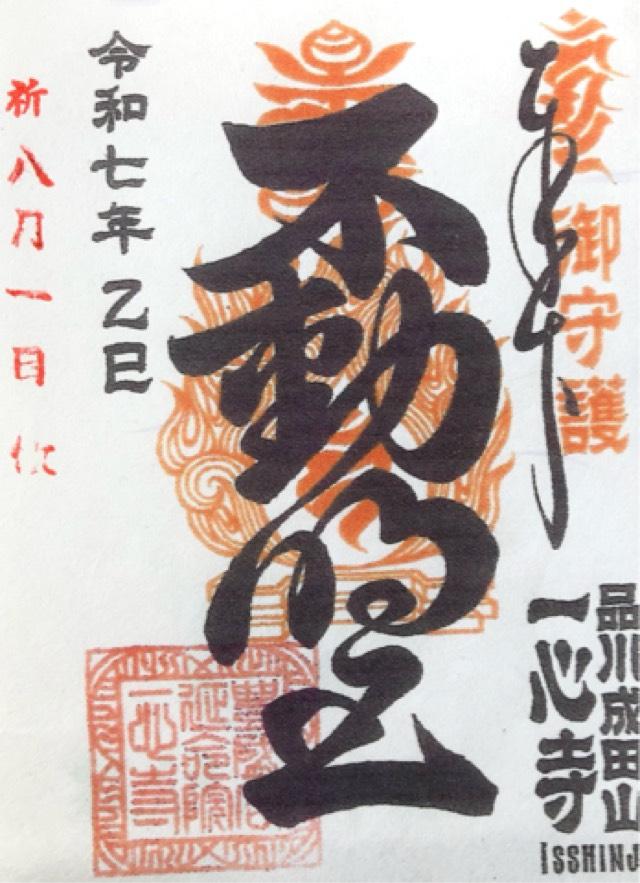 御守護
奉拝
品川成田山
一心寺
ISSHINJ
不動明王
延命院
一心寺
令和七年 乙巳
八月一日